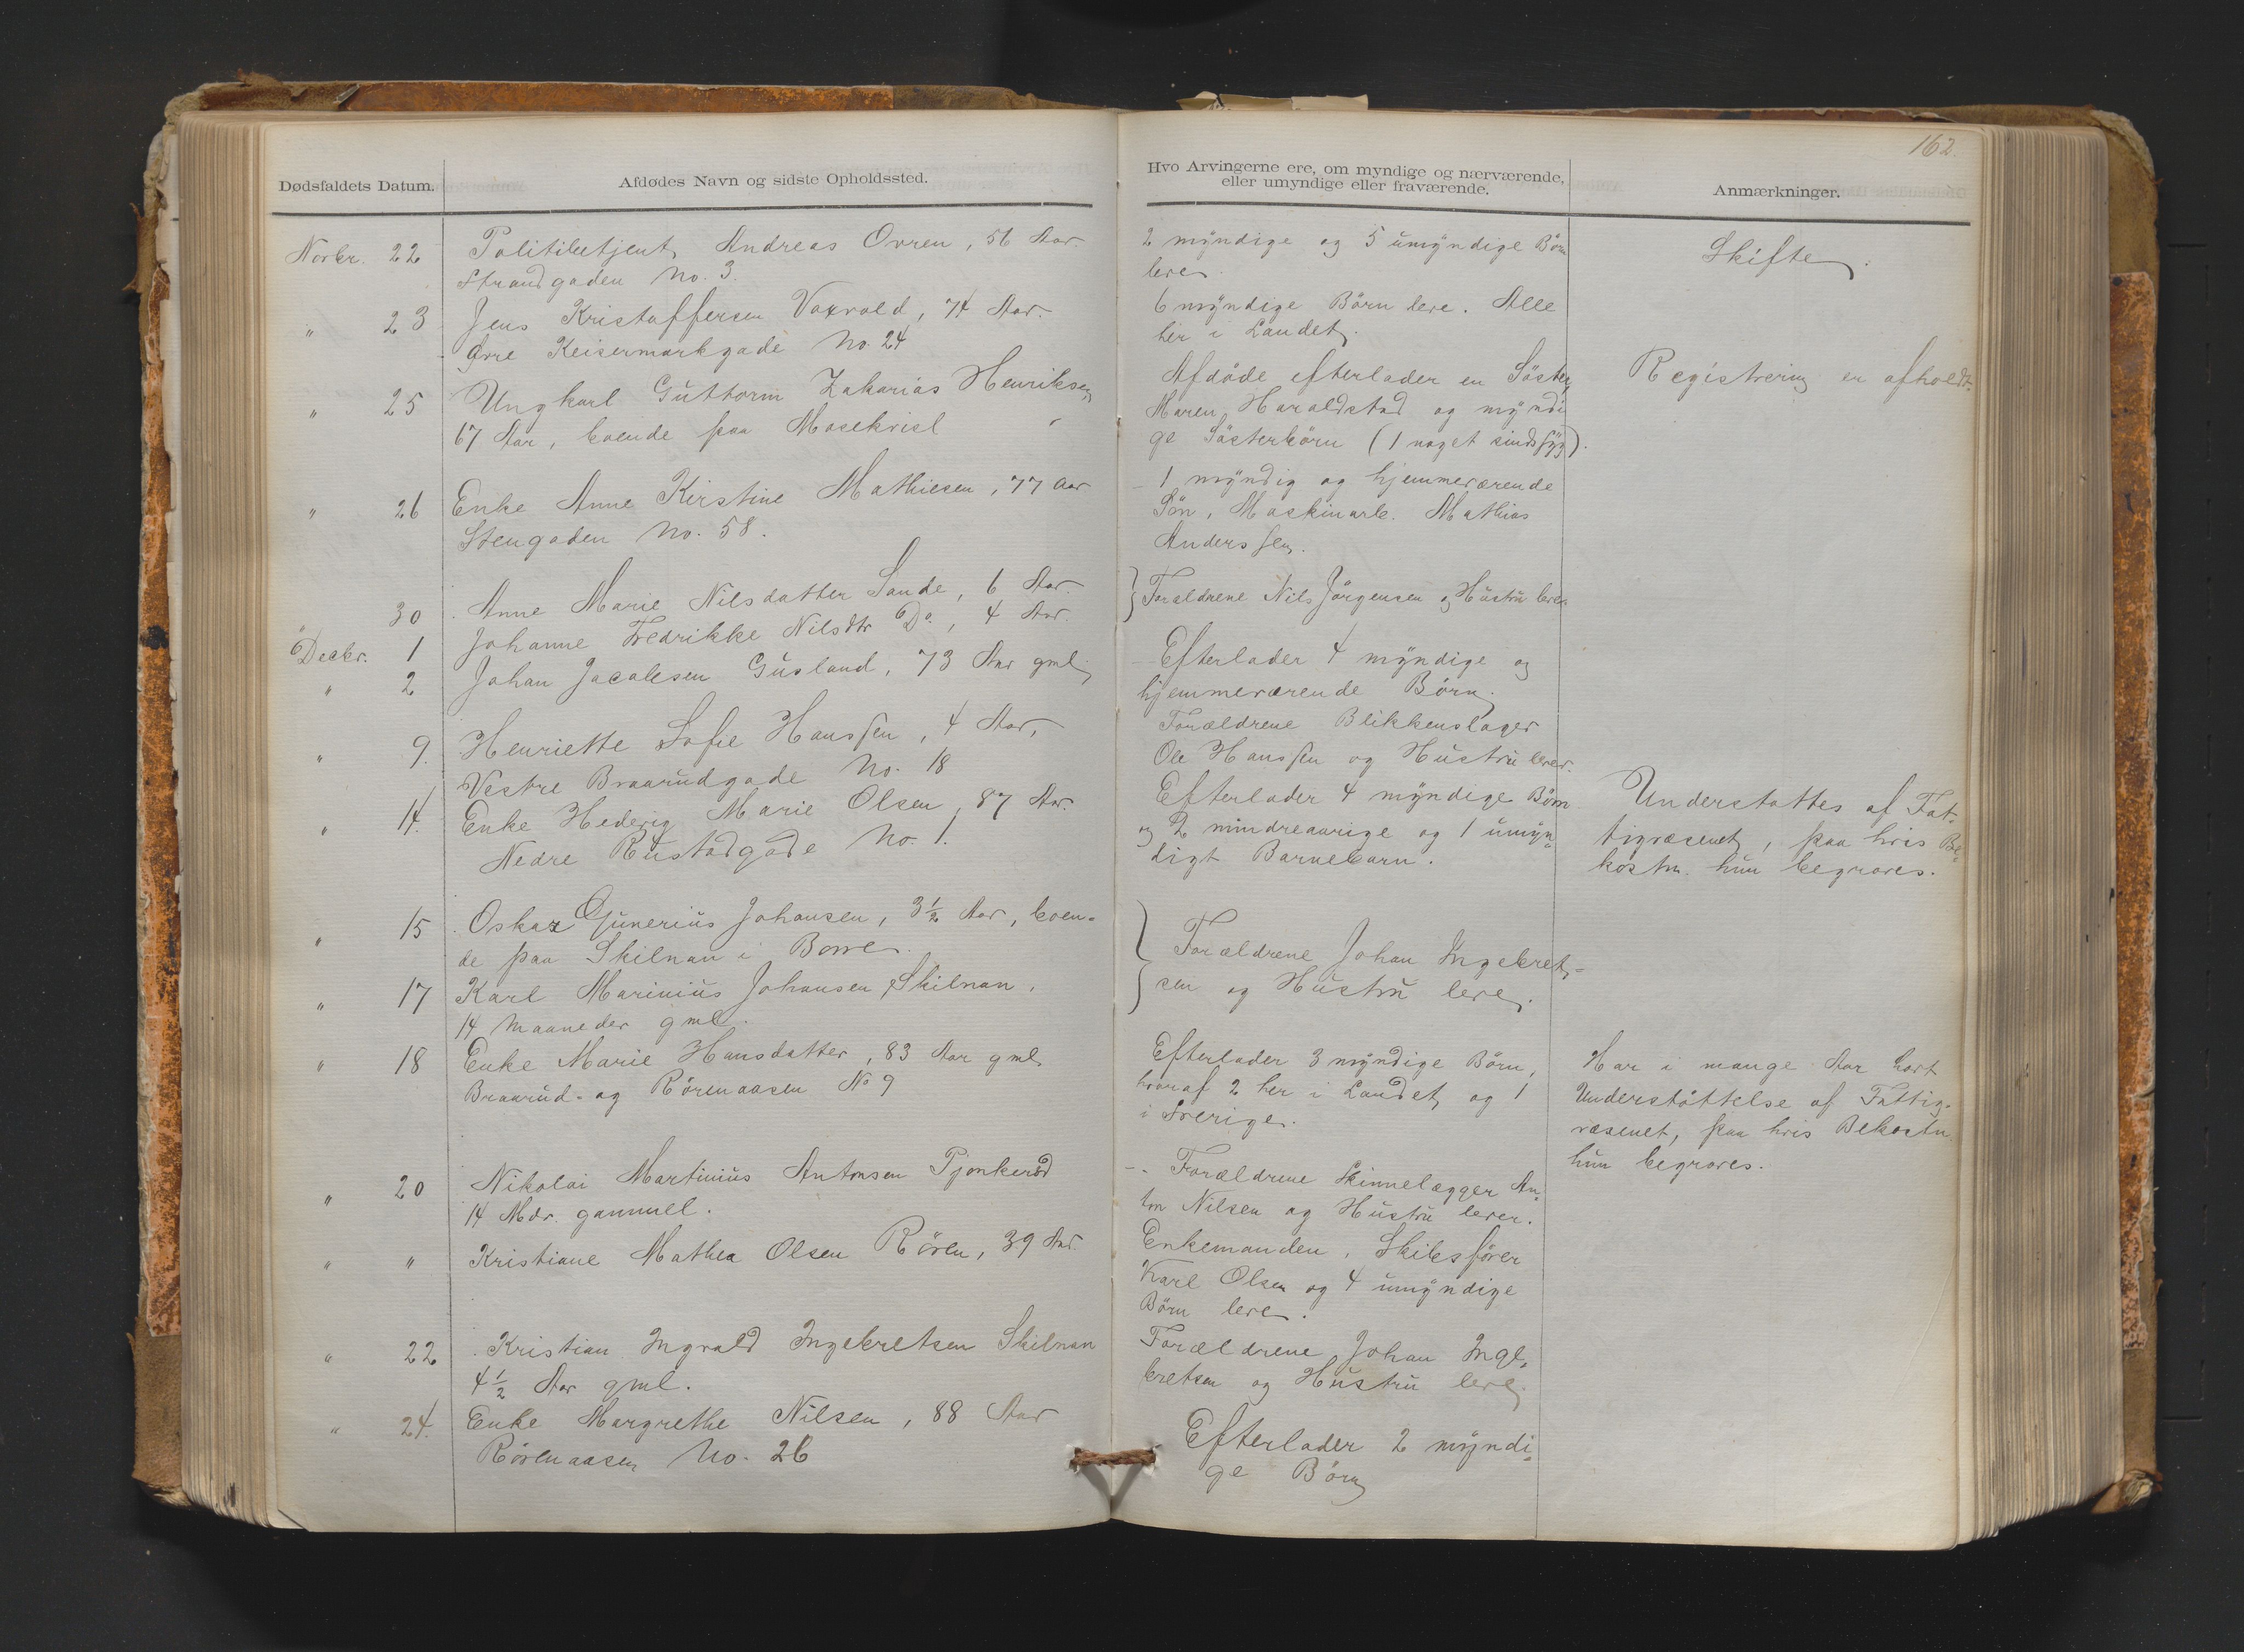 162.
Dødsfaldets Datum.
Afdødes Navn og sidste Opholdssted.
Hvo Arvingerne ere, om myndige og nærværende,
eller umyndige eller fraværende.
Anmærkninger.
Novbr. 22 Politibetjent Andreas Ovren, 56 Aar
Strandgaden No. 3.
2 myndige og 5 umyndige Börn
lever.
Skifte.
" 23 Jens Kristoffersen Voxvold, 74 Aar.
Övre Keisermarkgade No. 24
6 myndige Börn leve. Alle
her i Landet.
" 25 Ungkarl Guttorm Zakarias Henriksen
67 Aar, boende paa
Afdöde efterlader en Söster
Maren Haraldstad og myndi
ge Sösterbörn (1 noget sindssyg).
Registrering er afholdt.
" 26 Enke Anne Kirstine Mathiesen, 77 Aar
Stengaden No. 58.
1 myndig og hjemmeværende
Sön, Maskinarb. Mathias
Anderssen.
" 30 Anne Marie Nilsdatter Sande, 6 Aar.
Decbr. 1 Johanne Fredrikke Nilsdtr Do, 4 Aar.
Forældrene Nils Jörgensen og Hustru lever.
" 2 Johan Jacobsen Gusland, 73 Aar gml.
Efterlader 4 myndige og
hjemmeværende Börn.
" 9. Henriette Sofie Hanssen, 4 Aar,
Vestre Braarudgade No. 18
Forældrene Blikkenslager
Ole Hanssen og Hustru lever.
" 14. Enke Hedevig Marie Olsen, 87 Aar.
Nedre Rustadgade No. 1.
Efterlader 4 myndige Börn
og 2 mindreaarige og 1 umyn-
digt Barnebarn.
Understøttes af Fat-
tigvæsenet, paa hvis Be-
kostn. hun begraves.
" 15 Oskar Gunerius Johansen, 3½ Aar, boen-
de paa Skilnan i Borre.
" 17 Karl Marinius Johansen, Skilnan,
14 Maaneder gml.
Forældrene Johan Ingebret-
sen og Hustru leve.
" 18 Enke Marie Hansdatter, 83 Aar gml
Braarud- og Rörenaasen No 9
Efterlader 3 myndige Börn,
hvoraf 2 her i Landet og 1
i Sverige.
Har i mange Aar havt
Understöttelse af Fattig-
væsenet, paa hvis Bekostn.
hun begraves.
" 20 Nikolai Martinius Antonsen Pjonkeröd
14 Mdr. gammel.
Forældrene Skinnelægger An-
ton Nilsen og Hustru lever.
" " Kristiane Mathea Olsen Rören, 39 Aar.
Enkemanden, Skibsförer
Karl Olsen og 4 umyndige
Börn leve.
" 22 Kristian Ingvald Ingebretsen Skilnan
4½ Aar gml.
Forældrene Johan Inge-
bretsen og Hustru leve.
" 24. Enke Margrethe Nilsen, 88 Aar
Rörenaasen No. 26
Efterlader 2 myndi-
ge Börn